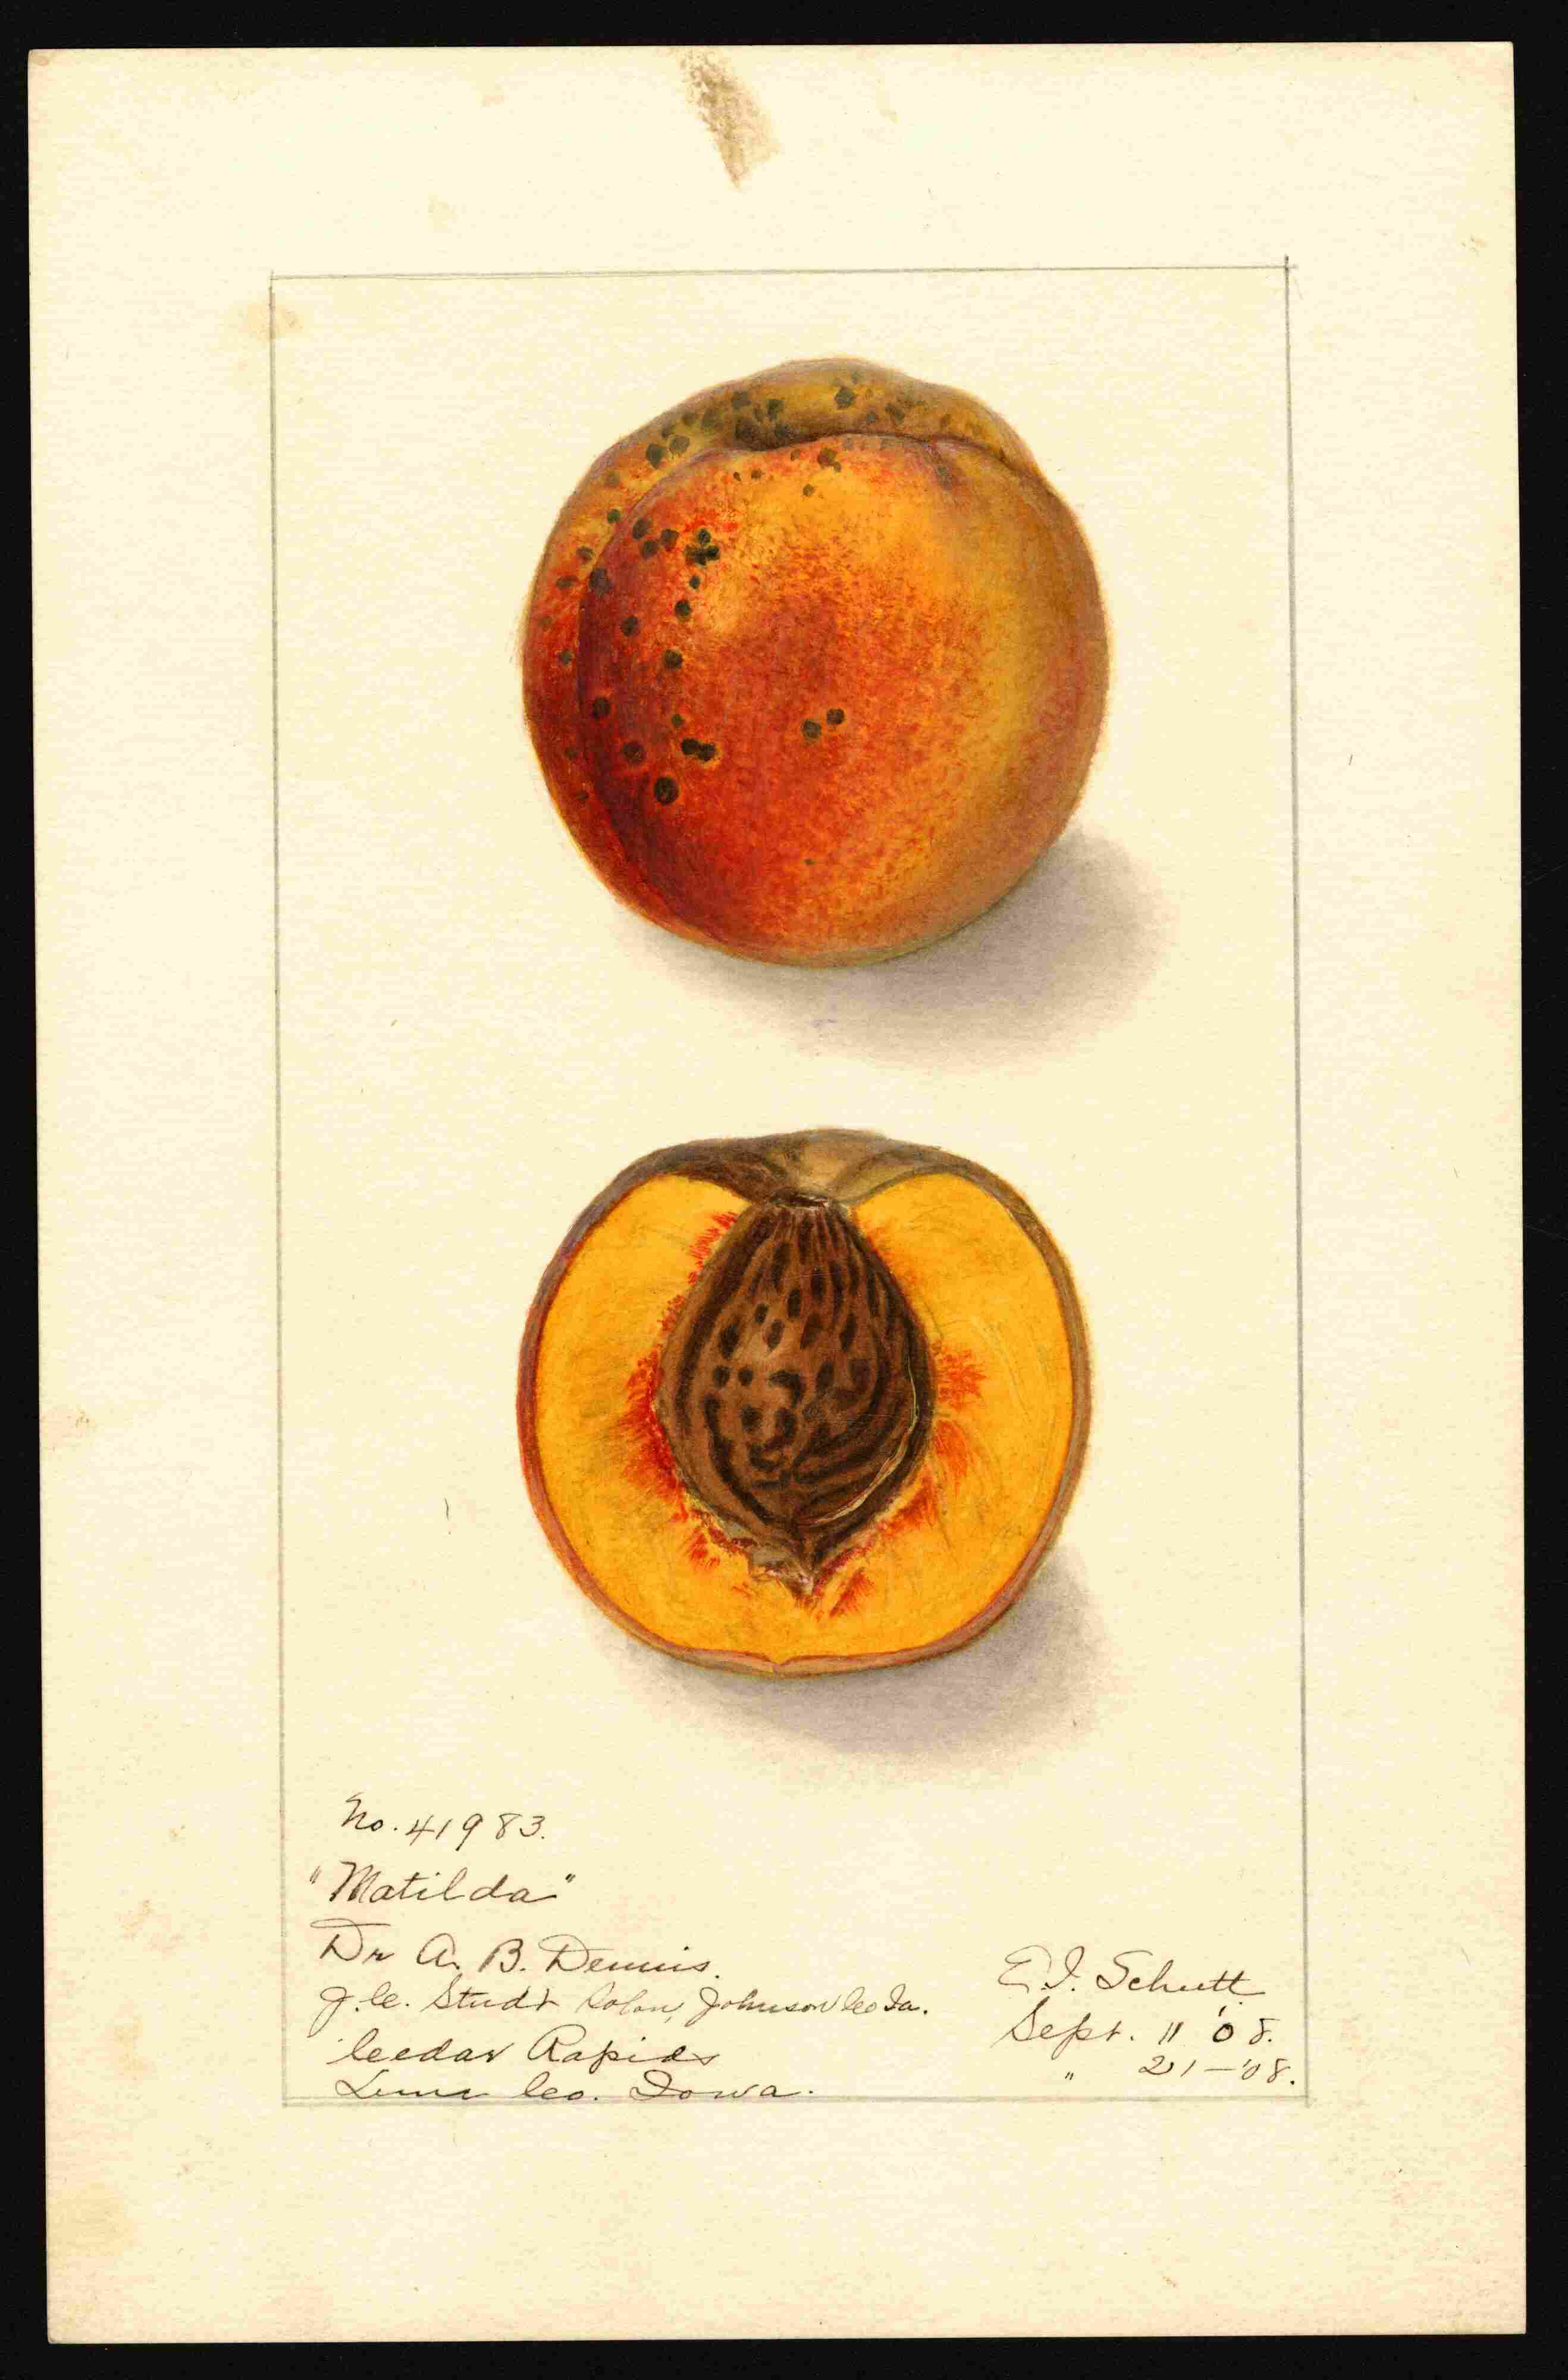 No. 41983.
"Matilda"
Dr A. B. Dennis.
J. C. Studt Solon, Johnson Co Ia.
Cedar Rapids
Linn Co. Iowa.
E. I. Schutt
Sept. 11 '08.
" 21-'08.